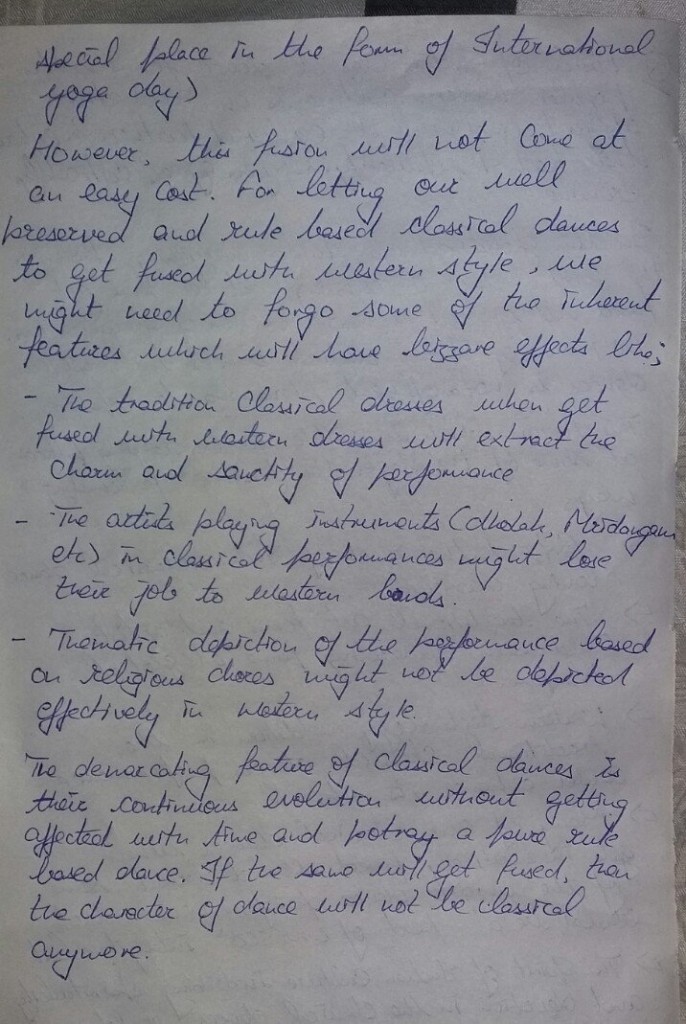 special place in the form of International
yoga day)
However, this fusion will not come at
an easy cost. For letting our well
preserved and rule based classical dances
to get fused with western style, we
might need to forgo some of the inherent
features which will have bizzare effects like;
- The tradition Classical dresses when get
fused with western dresses will extract the
charm and sanctity of performance
- The artists playing instruments (dholak, Mridangam
etc) in classical performances might lose
their job to western bands.
- Thematic depiction of the performance based
on religious chores might not be depicted
effectively in western style.
The demarcating feature of classical dances is
their continuous evolution without getting
affected with time and potray a pure rule
based dance. If the same will get fused, then
the character of dance will not be classical
anymore.